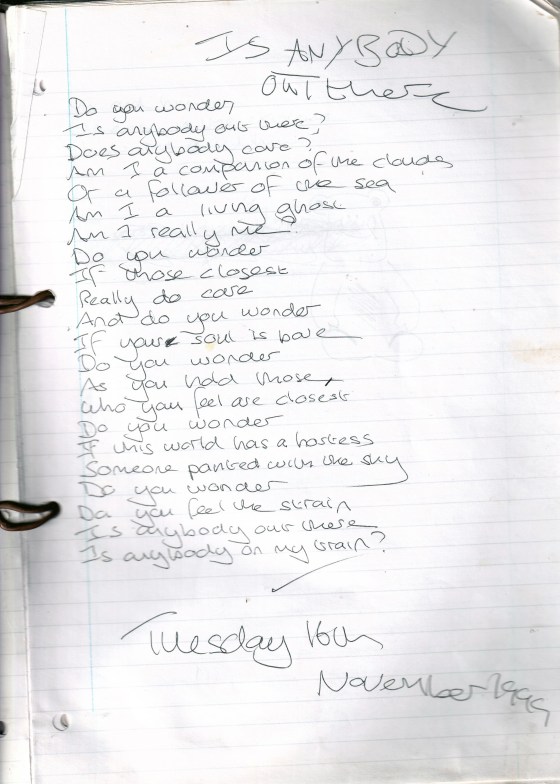 Is ANYBODY
OUT there
Do you wonder,
Is anybody out there?
Does anybody care?
Am I a companion of the clouds
Or a follower of the sea
Am I a living ghost
Am I really me?
Do you wonder
If those closest
Really do care
And do you wonder
If your soul is bare
Do you wonder
As you hold those,
who you feel are closest
Do you wonder
If this world has a hostess
Someone painted with the sky
Do you wonder
Do you feel the strain
Is anybody out there
Is anybody on my train?
Tuesday 16th
November 1999